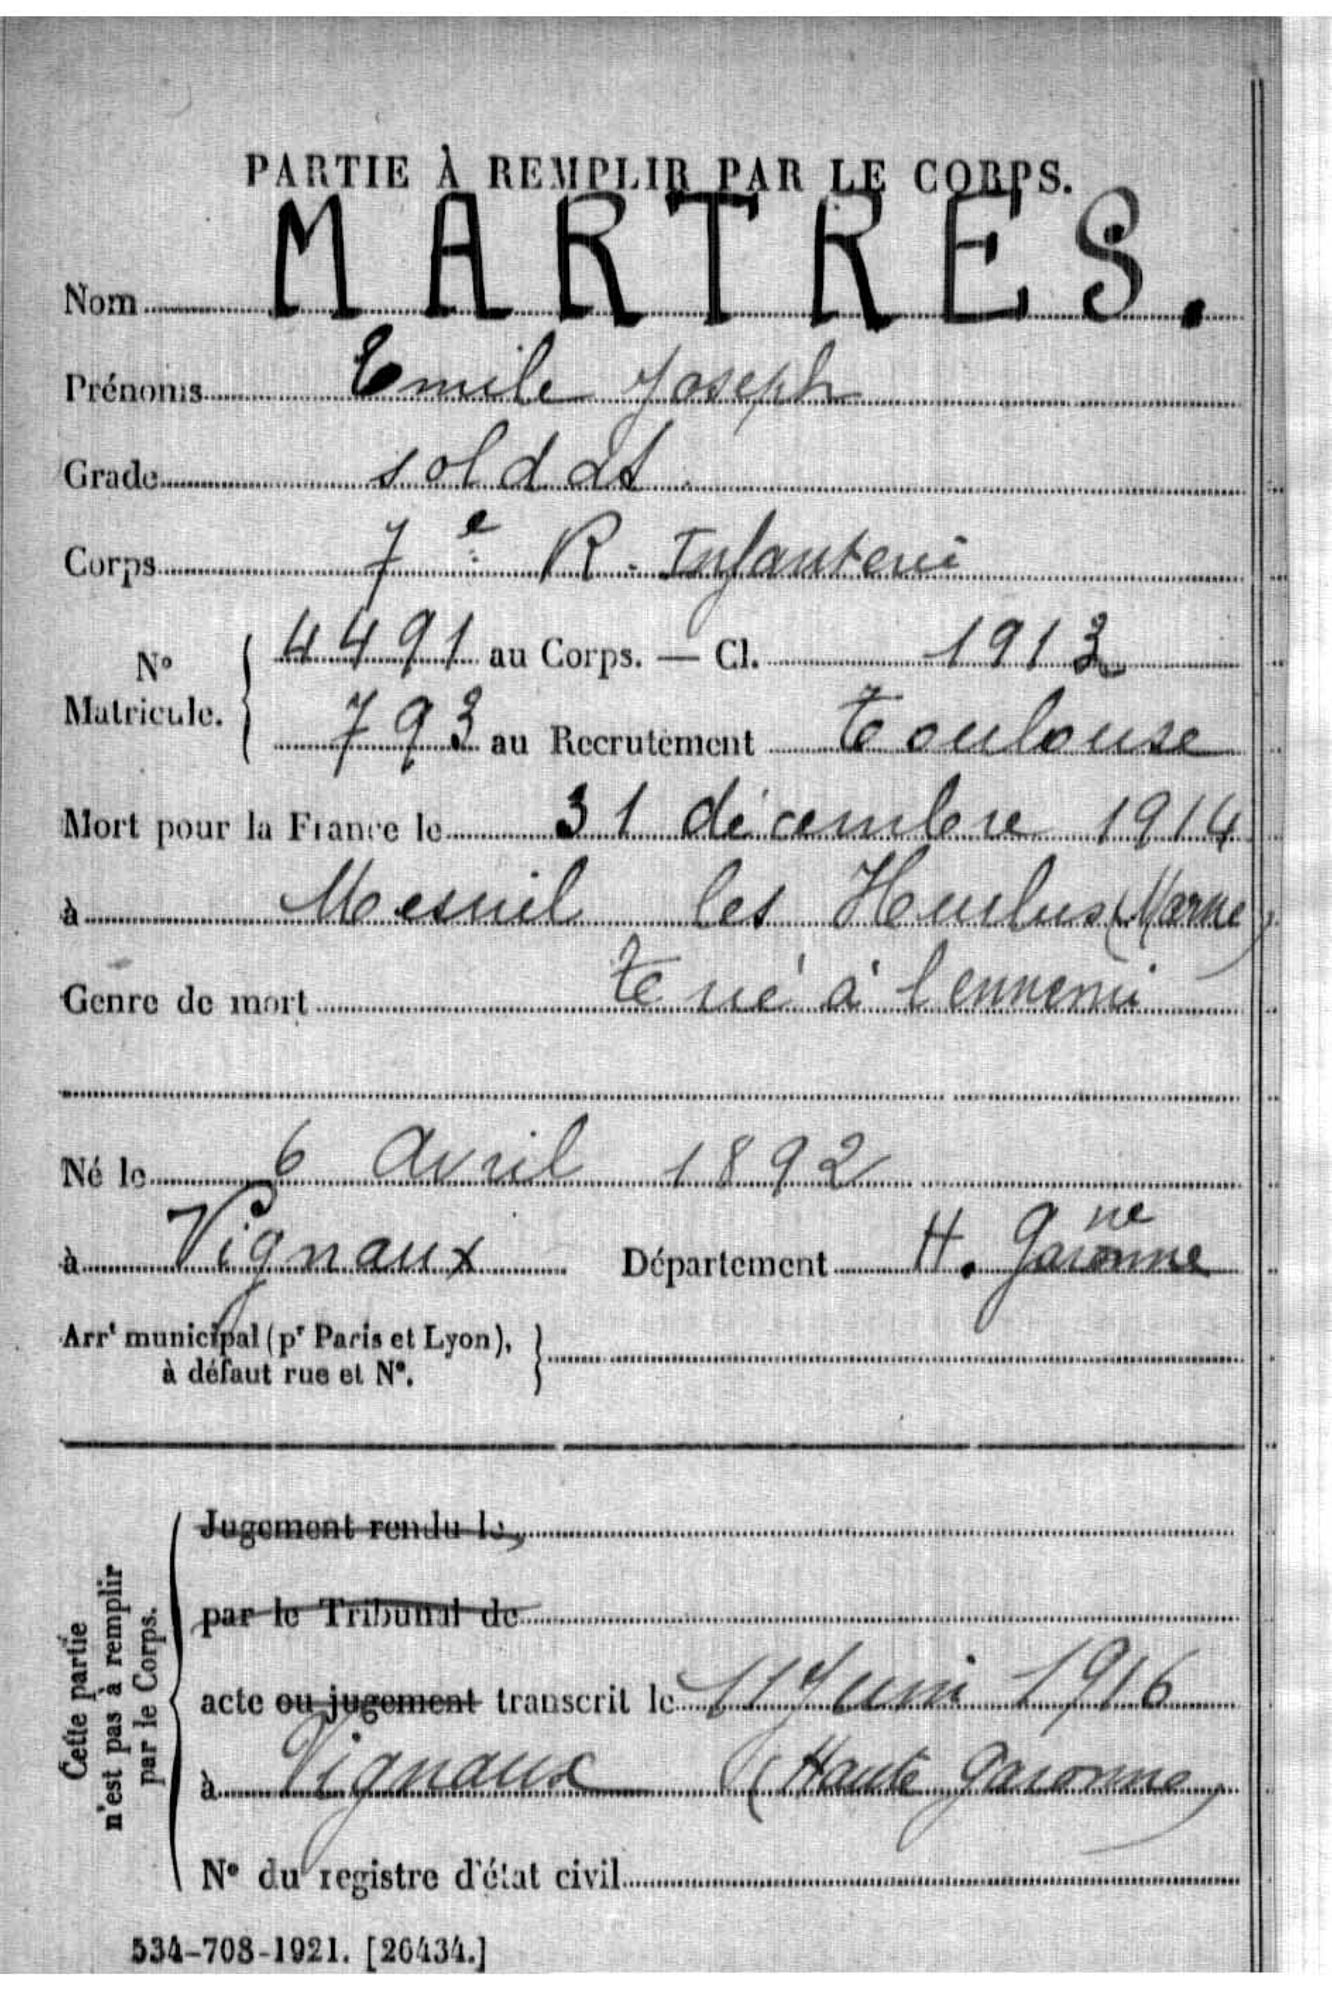 PARTIE À REMPLIR PAR LE CORPS.
Nom MARTRES.
Prénoms Emile Joseph
Grade soldat.
Corps 7e R. Infanterie
No Matricule. { 4491 au Corps. — Cl.
793 au Recrutement Toulouse
Mort pour la France le 31 décembre 1914
à Mesnil les Hurlus (Marne)
Genre de mort tué à l'ennemi
Né le 6 Avril 1892
à Vignaux Département H. Garonne
Arrt municipal (pr Paris et Lyon), à défaut rue et No. }
Cette partie n'est pas à remplir par le Corps.
Jugement rendu le,
par le Tribunal de
acte ou jugement transcrit le 11 Juin 1916
à Vignaux (Haute Garonne)
No du registre d'état civil
534-708-1921. [26434.]